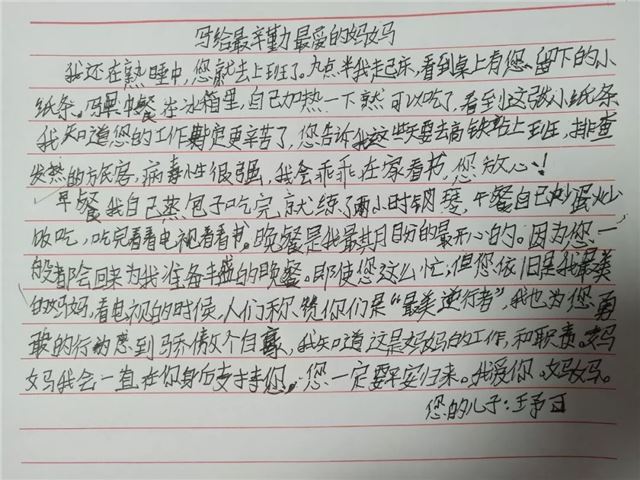 写给最辛勤最爱的妈妈
我还在熟睡中,您就去上班了。九点半我起床,看到桌上有您留下的小
纸条。写早餐在冰箱里,自己加热一下就可以吃了,看到这张小纸条
我知道您的工作肯定更辛苦了,您告诉我这些天要去高铁站上班,排查
发热的旅客,病毒性很强,我会乖乖在家看书,您放心!
早餐我自己蒸包子吃完就练了两小时钢琴,午餐自己炒蛋炒
饭吃,吃完看看电视看看书。晚餐是我最期盼的最开心的。因为您一
般都会回来为我准备丰盛的晚餐。即使您这么忙,但您依旧是我最美
的妈妈,看电视的时候,人们称赞你们是“最美逆行者”,我也为您勇
敢的行为感到骄傲个自豪,我知道,这是妈妈的工作,和职责。妈
妈我会一直在你身后支持您,您一定要平安归来。我爱你,妈妈。
您的儿子: